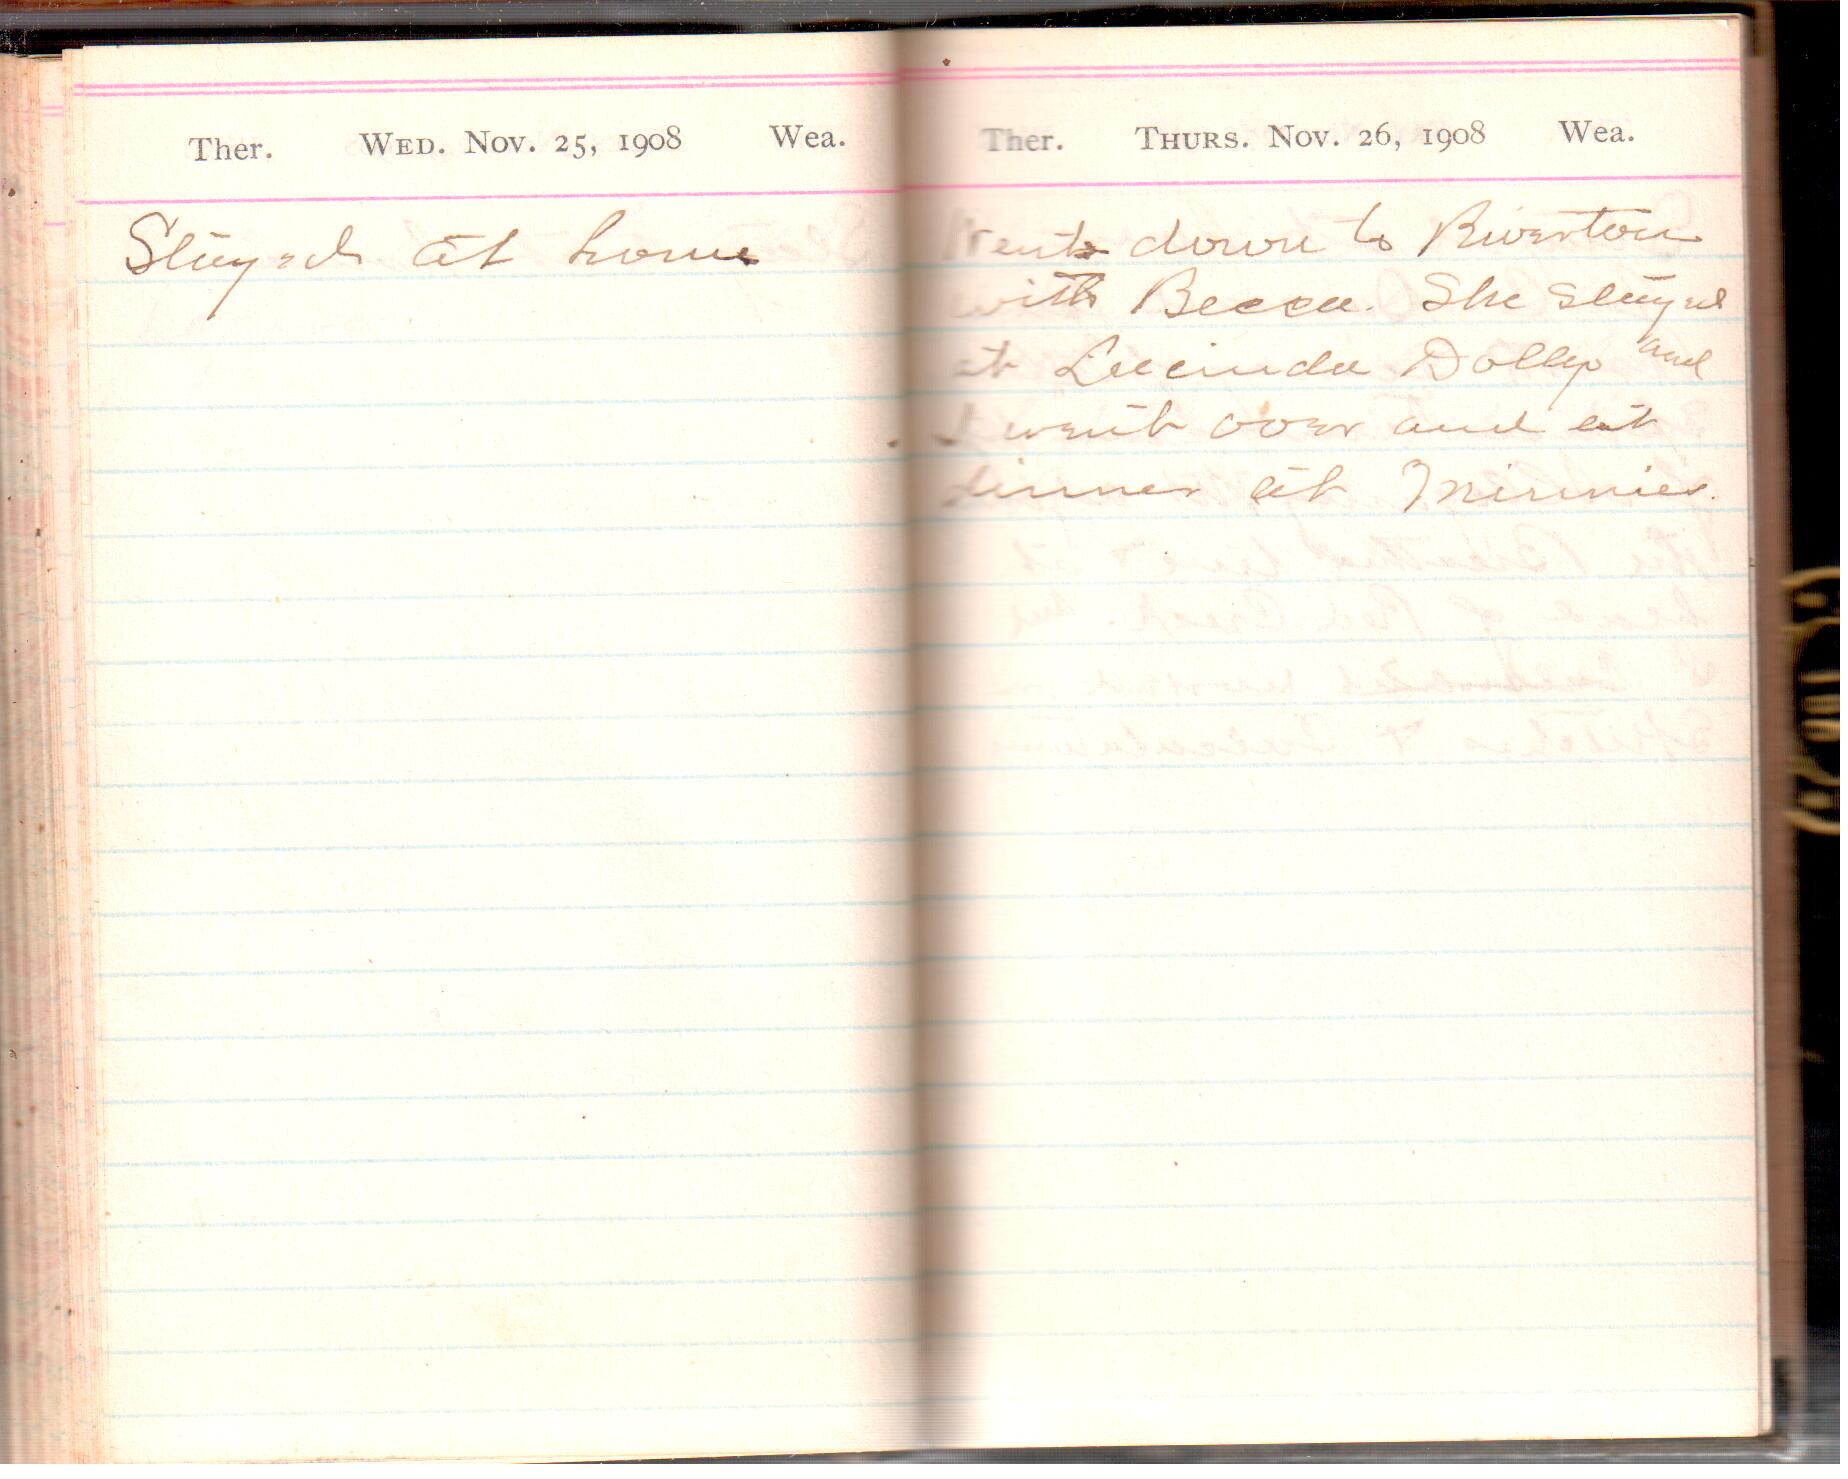 Ther. WED. NOV. 25, 1908 Wea.
Stayed at home
Ther. THURS. NOV. 26, 1908 Wea.
Went down to Riverton
with Becca. She stayed
at Lucinda Dollys and
I went over and eat
dinner at Minnies.